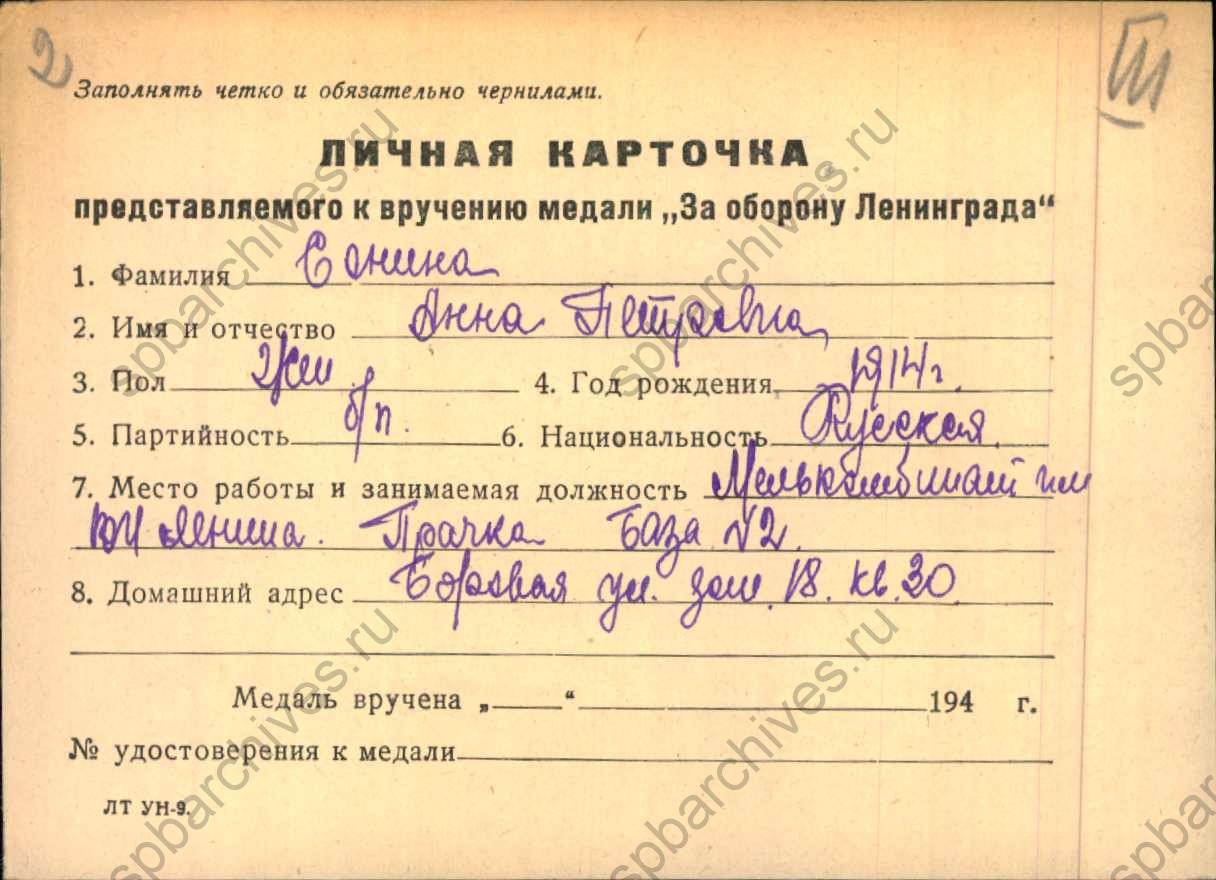 2
III
Заполнять четко и обязательно чернилами.
ЛИЧНАЯ КАРТОЧКА
представляемого к вручению медали „За оборону Ленинграда“
1. Фамилия Сонина
2. Имя и отчество Анна Петровна
3. Пол Жен 4. Год рождения 1914 г.
5. Партийность б/п. 6. Национальность Русская
7. Место работы и занимаемая должность Мелькомбинат им
ВИ Ленина. Прачка База №2.
8. Домашний адрес Боровая ул. дом. 18. кв. 30
Медаль вручена „ “ 194 г.
№ удостоверения к медали
ЛТ УН-9.
spbarchives.ru
spbarchives.ru
spbarchives.ru
spbarchives.ru